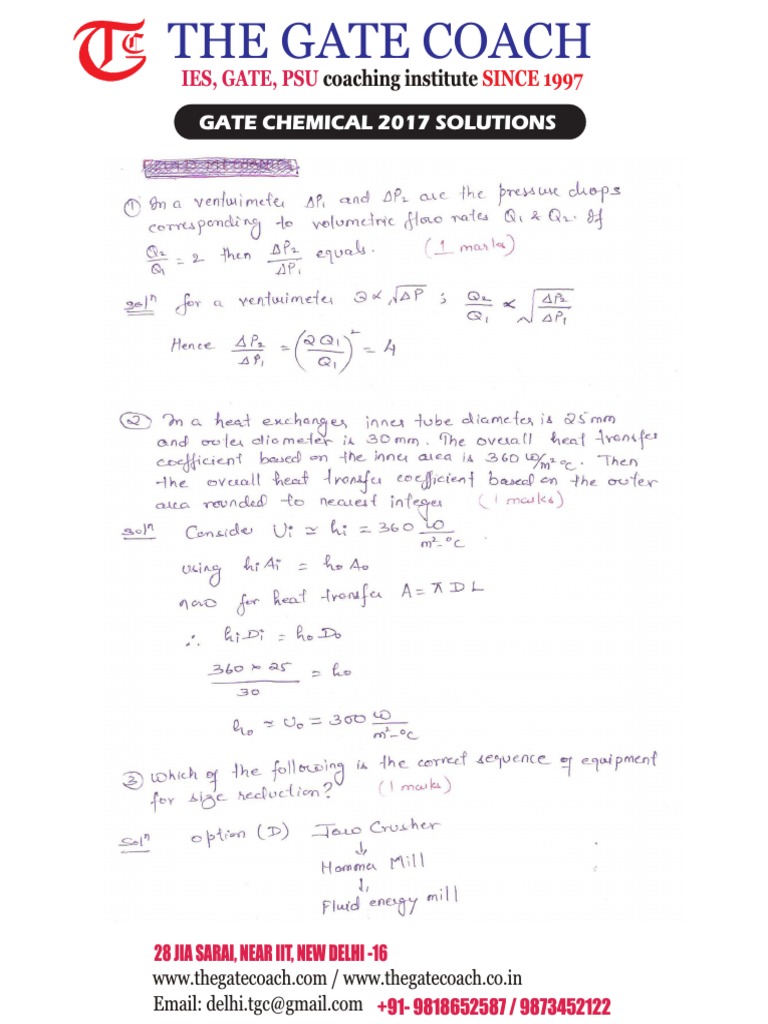 Tc C
THE GATE COACH
IES, GATE, PSU coaching institute SINCE 1997
GATE CHEMICAL 2017 SOLUTIONS
① In a venturimeter ΔP₁ and ΔP₂ are the pressure drops
corresponding to volumetric flow rates Q₁ & Q₂. If
Q₂/Q₁ = 2 then ΔP₂/ΔP₁ equals. (1 marks)
Solⁿ for a venturimeter Q ∝ √ΔP ; Q₂/Q₁ ∝ √(ΔP₂/ΔP₁)
Hence ΔP₂/ΔP₁ = (2Q₁/Q₁)² = 4
② In a heat exchanger inner tube diameter is 25mm
and outer diameter is 30mm. The overall heat transfer
coefficient based on the inner area is 360 W/m² °C. Then
the overall heat transfer coefficient based on the outer
area rounded to nearest integer (1 marks)
Solⁿ Consider Ui ≃ hi = 360 W/m²-°C
using hiAi = hoAo
now for heat transfer A = πDL
∴ hiDi = hoDo
360 × 25/30 = ho
ho ≃ Uo = 300 W/m²-°C
③ Which of the following is the correct sequence of equipment
for size reduction? (1 marks)
Solⁿ option (D) Jaw Crusher
↓
Hamma Mill
↓
Fluid energy mill
28 JIA SARAI, NEAR IIT, NEW DELHI -16
www.thegatecoach.com / www.thegatecoach.co.in
Email: delhi.tgc@gmail.com +91- 9818652587 / 9873452122